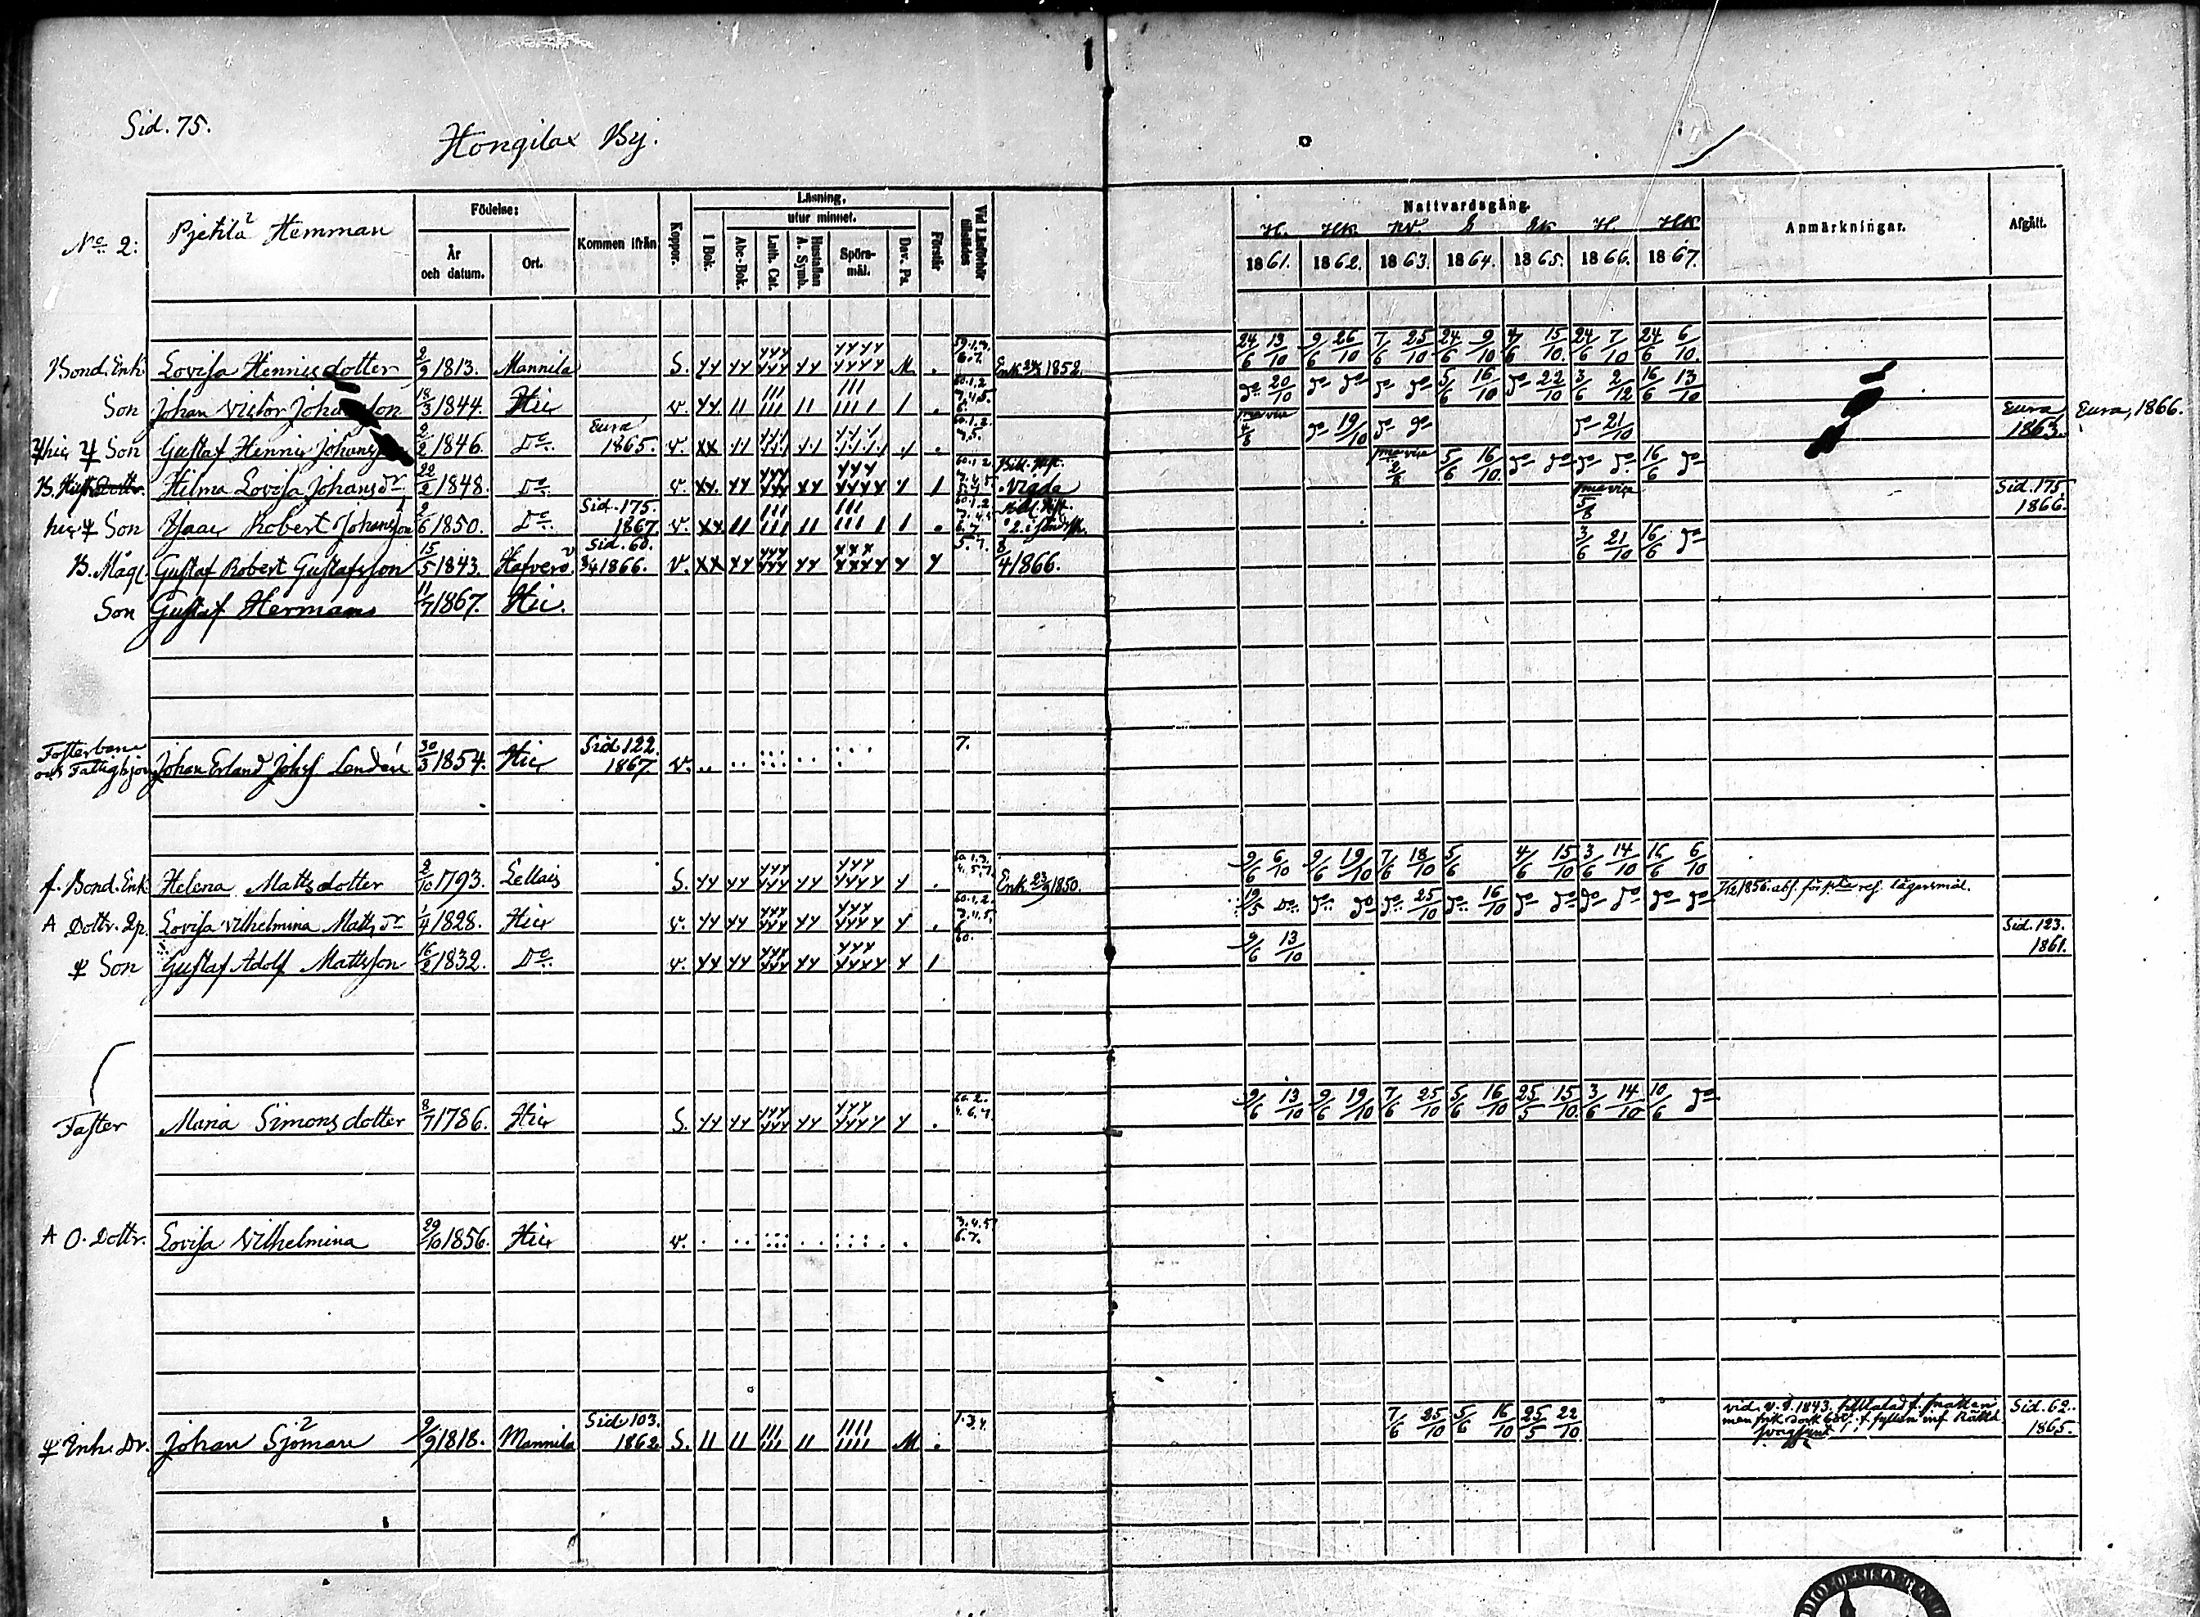 Sid. 75.
Hongilax By.
No 2:
Pjetilä Hemman
Födelse:
År och datum.
Ort.
Kommen ifrån
Koppor.
Läsning,
I Bok.
utur minnet.
Abc-Bok.
Luth. Cat.
Hustaflan A. Symb.
Spörs-mål.
Dav. Ps.
Förstår
Vid Läsförhör tillstädes
Nattvardsgång.
H. Hk H E Ek H. Hk
1861. 1862. 1863. 1864. 1865. 1866. 1867.
Anmärkningar.
Afgått.
Bond. Enk. Lovisa Hennisdotter 2/9 1813. Mannila S. M Enk. 1852. 24/6 13/10 9/6 26/10 7/6 25/10 24/6 9/10 4/6 15/10 24/6 7/10 24/6 6/10
Son Johan Victor Johansson 18/3 1844. Hic v. do 20/10 do do do do 5/6 16/10 do 22/10 3/6 2/12 16/6 13/10
Son Gustaf Hennis 2/2 1846. Do Eura 1865. v. do 19/10 do do do 21/10 Eura 1863. Eura, 1866.
Hilma Lovisa Johansdr 20/2 1848. Do v. Vigde 5/6 16/10 do do do do 16/6 do
Son Isaac Robert Johansson 2/6 1850. Do Sid. 175. 1867. v. 5/8 Sid. 175. 1866.
B. Måg. Gustaf Robert Gustafsson 15/5 1843. Hafverö Sid. 60. 1866. v. 8/4 1866. 3/6 21/10 16/6 do
Son Gustaf Hermans 11/7 1867. Hic.
Fosterbarn och Fattighjon Johan Erland Johss Lendén 30/3 1854. Hic Sid 122. 1867. v. 7.
f. Bond. Enk Helena Mattsdotter 2/10 1793. Lellais S. Enk. 23/9 1850. 9/6 6/10 9/6 19/10 7/6 18/10 5/6 4/6 15/10 3/6 14/10 16/6 6/10
A Dottr. Lovisa Vilhelmina Mattsdr 1/4 1828. Hic v. 19/5 do do do do 25/10 do 16/10 do do do do do do 1856. abs. för lägersmål.
Son Gustaf Adolf Mattsson 16/2 1832. Do v. 60. 9/6 13/10 Sid. 123. 1861.
Faster Maria Simonsdotter 8/7 1786. Hic S. 9/6 13/10 9/6 19/10 7/6 25/10 5/6 16/10 25/5 15/10 3/6 14/10 10/6 do
A O. Dottr. Lovisa Vilhelmina 29/10 1856. Hic v. 3.4.5. 6.7.
Inh. Dr. Johan Sjöman 9/9 1818. Mannila Sid. 103. 1862 S. M 7/6 25/10 5/6 16/10 25/5 22/10 vid 1843. tilltalad f. men Sid. 62. 1865.